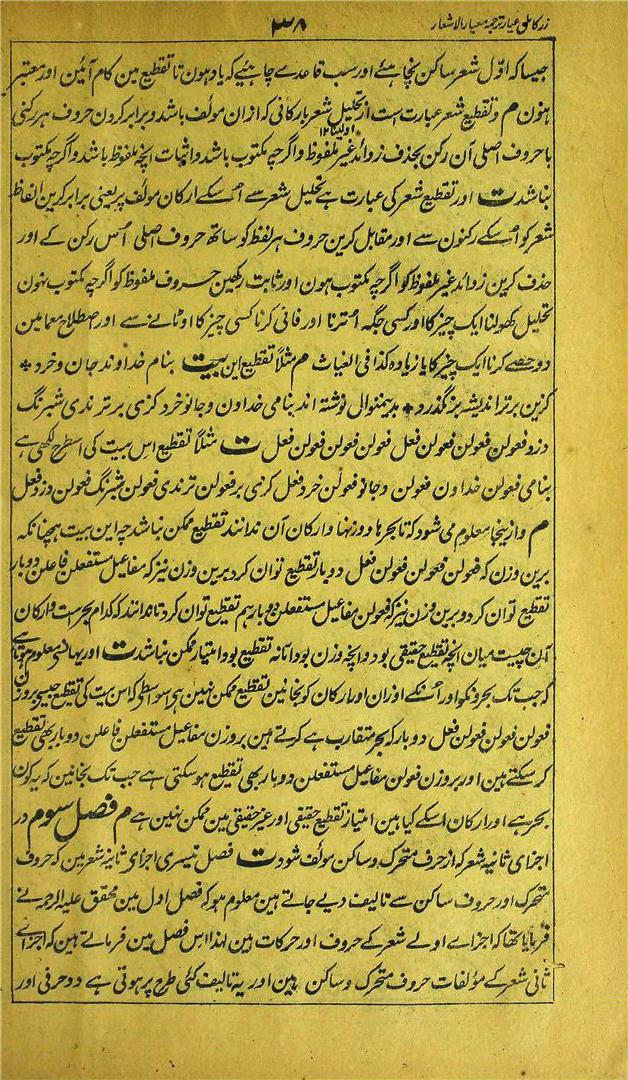 زر کامل عیار ترجمہ معیار الاشعار
۳۸
جیسا کہ اوّل شعر ساکن نچاہیئے اور سب قاعدے چاہیئے کہ یاد ہون تا تقطیع مین کام آئین اور معتبر
ہون م و تقطیع شعر عبارت ست از تحلیل شعر بارکانی کہ ازان مولف باشد و برابر کردن حروف ہر رکنی
با حروف اصلی آن رکن بحذف زوائد غیر ملفوظ و اگرچہ مکتوب باشد و اثبات انچہ ملفوظ باشد و اگرچہ مکتوب
نباشد ت اور تقطیع شعر کی عبارت ہے تحلیل شعر سے اُسکے ارکان مولف پر یعنی برابر کرین الفاظ
شعر کو اُسکے رکنون سے اور مقابل کرین حروف ہر لفظ کو ساتھ حروف اصلی اُس رکن کے اور
حذف کرین زوائد غیر ملفوظ کو اگرچہ مکتوب ہون اور ثابت رکھین حروف ملفوظ کو اگرچہ مکتوب نہون
تحلیل کھولنا ایک چیز کا اور کسی جگہ اُترنا اور فانی کرنا کسی چیز کا اوٹالنے سے اور اصطلاح معامین
دو حصے کرنا ایک چیز کا یا زیادہ کذا فی الغیاث م مثلاً تقطیع این بیت بنام خداوند جان و خرد *
کزین برتر اندیشہ بر نگذرد * برینمنوال نوشتہ اند بنامی خداون و جانو خرد کزی بر تر ندی شبر نگ
ذرد فعولن فعولن فعولن فعل فعولن فعولن فعولن فعل ت مثلاً تقطیع اس بیت کی اسطرح لکھی ہے
بنامی فعولن خداون فعولن و جانو فعولن خرد فعل کزی بر فعولن تر ندی فعولن شبر نگ فعولن ذرد فعل
م و ازینجا معلوم می شود کہ تا بحرہا و وزنہا و ارکان آن ندانند تقطیع ممکن نباشد چہ این بیت ہمچنانکہ
برین وزن کہ فعولن فعولن فعولن فعل دو بار تقطیع توان کرد برین وزن نیز کہ مفاعیل مستفعلن فاعلن دوبار
تقطیع توان کرد و برین وزن نیز کہ فعولن مفاعیل مستفعلن دوبار ہم تقطیع توان کرد تا ندانند کہ کدام بحرست و ارکان
آن چیست میان انچہ تقطیع حقیقی بود و انچہ وزن بود انا نہ تقطیع بود امتیاز ممکن نباشد ت اور یہانسے معلوم ہوتا ہے
کہ جب تک بحرونکو اور اُنکے اوزان اور ارکان کو نجانین تقطیع ممکن نہین ہے اسواسطے کہ اس بیت کی تقطیع جیسی بروزن
فعولن فعولن فعولن فعل دوبار کہ بحر متقارب ہے کرتے ہین بروزن مفاعیل مستفعلن فاعلن دوبار بھی تقطیع
کر سکتے ہین اور بروزن فعولن مفاعیل مستفعلن دوبار بھی تقطیع ہو سکتی ہے جب تک نجانین کہ یہ کون
بحر ہے اور ارکان اسکے کیا ہین امتیاز تقطیع حقیقی اور غیر حقیقی مین ممکن نہین ہے م فصل سوم در
اجزای ثانیہ شعر کہ از حرف متحرک و ساکن مولف شود ت فصل تیسری اجزای ثانیہ شعر مین کہ حروف
متحرک اور حروف ساکن سے تالیف دیے جاتے ہین معلوم ہو کہ فصل اول مین محقق علیہ الرحمہ نے
فرمایا تھا کہ اجزاے اولے شعر کے حروف اور حرکات ہین لہذا اس فصل مین فرماتے ہین کہ اجزاے
ثانی شعر کے مولفات حروف متحرک و ساکن ہین اور یہ تالیف کئی طرح پر ہوتی ہے دو حرفی اور